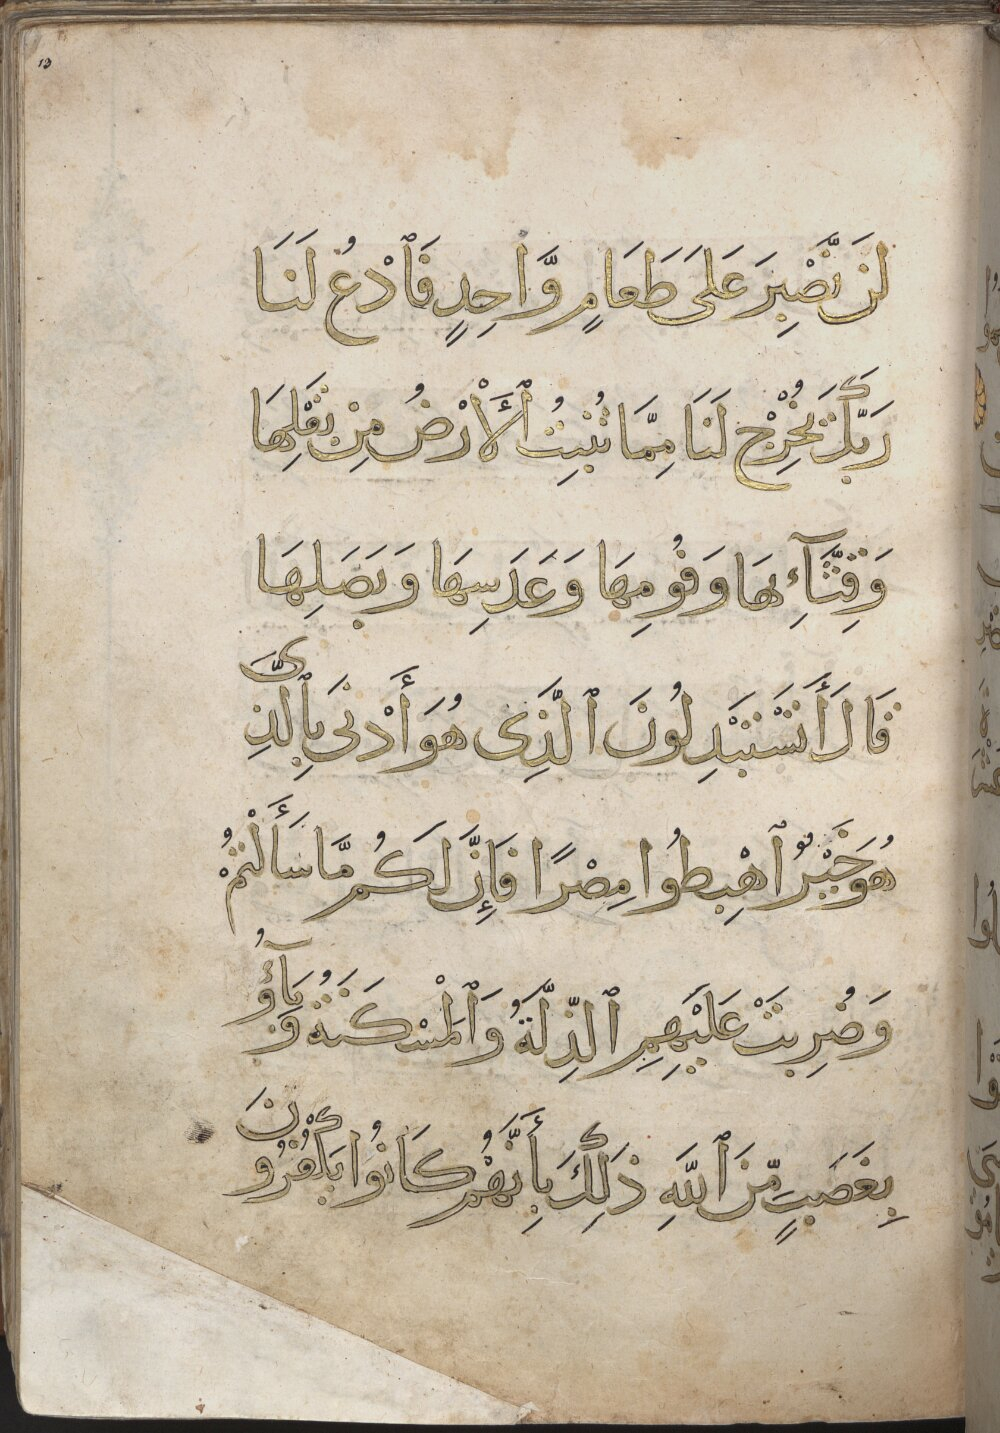 13
لَن نَّصْبِرَ عَلَىٰ طَعَامٍ وَّاحِدٍ فَٱدْعُ لَنَا
رَبَّكَ يُخْرِجْ لَنَا مِمَّا تُنۢبِتُ ٱلْأَرْضُ مِنۢ بَقْلِهَا
وَقِثَّآئِهَا وَفُومِهَا وَعَدَسِهَا وَبَصَلِهَا
قَالَ أَتَسْتَبْدِلُونَ ٱلَّذِى هُوَ أَدْنَىٰ بِٱلَّذِى
هُوَ خَيْرٌ ٱهْبِطُوا مِصْرًا فَإِنَّ لَكُم مَّا سَأَلْتُمْ
وَضُرِبَتْ عَلَيْهِمُ ٱلذِّلَّةُ وَٱلْمَسْكَنَةُ وَبَآؤُ
بِغَضَبٍ مِّنَ ٱللَّهِ ذَٰلِكَ بِأَنَّهُمْ كَانُوا يَكْفُرُونَ